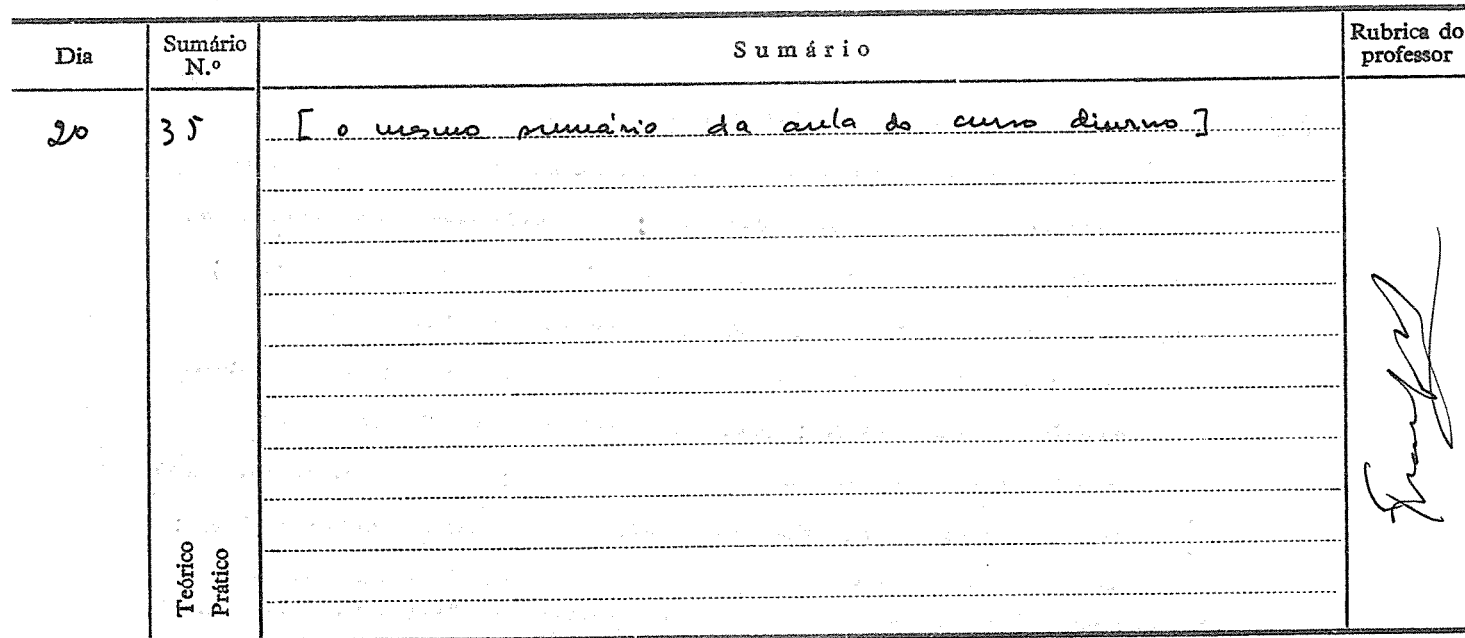 Dia Sumário N.º Sumário Rubrica do professor
20 35 [ o mesmo sumário da aula do curso diurno ]
Teórico
Prático